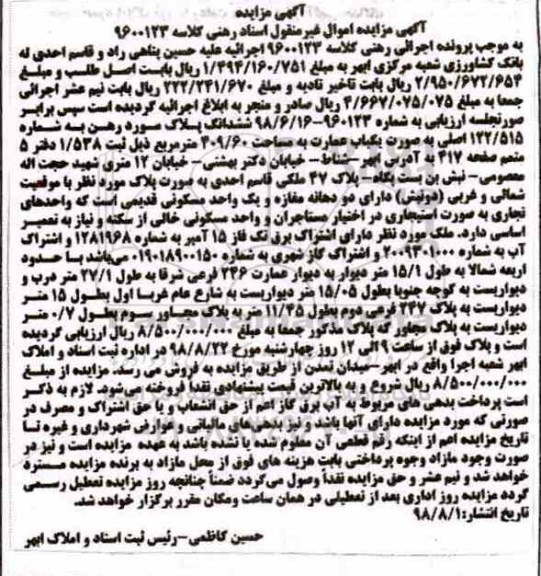 آگهی مزایده
آگهی مزایده اموال غیرمنقول اسناد رهنی کلاسه ۹۶۰۰۱۲۳
به موجب پرونده اجرائی رهنی کلاسه ۹۶۰۰۱۲۳ اجرائیه علیه حسین پناهی راد و قاسم احدی له
بانک کشاورزی شعبه مرکزی ابهر به مبلغ ۱/۴۹۴/۱۶۰/۷۵۱ ریال بابت اصل طلب و مبلغ
۲/۹۵۰/۶۷۲/۶۵۴ ریال بابت تاخیر تادیه و مبلغ ۲۲۲/۲۴۱/۶۷۰ ریال بابت نیم عشر اجرائی
جمعا به مبلغ ۴/۶۶۷/۰۷۵/۰۷۵ ریال صادر و منجر به ابلاغ اجرائیه گردیده است سپس برابر
صورتجلسه ارزیابی به شماره ۹۶۰۱۲۳-۹۸/۶/۱۶ ششدانگ پلاک مورد رهن به شماره
۱۲۲/۵۱۵ اصلی به صورت یکباب عمارت به مساحت ۴۰۹/۶۰ مترمربع ذیل ثبت ۱/۵۳۸ دفتر ۵
متمم صفحه ۴۱۷ به آدرس ابهر-شناط- خیابان دکتر بهشتی- خیابان ۱۲ متری شهید حجت اله
معصومی- نبش بن بست پگاه- پلاک ۴۷ ملکی قاسم احدی به صورت پلاک مورد نظر با موقعیت
شمالی و غربی (دونبش) دارای دو دهانه مغازه و یک واحد مسکونی قدیمی است که واحدهای
تجاری به صورت استیجاری در اختیار مستاجران و واحد مسکونی خالی از سکنه و نیاز به تعمیر
اساسی دارد. ملک مورد نظر دارای اشتراک برق تک فاز ۱۵ آمپر به شماره ۱۲۸۱۹۶۸ و اشتراک
آب به شماره ۲۰۰۹۳۰۱۰۰۰ و اشتراک گاز شهری به شماره ۰۱۹۰۱۸۹۰۰۱۵۰ می‌باشد با حدود
اربعه شمالا به طول ۱۵/۱ متر دیوار به دیوار عمارت ۲۴۶ فرعی شرقا به طول ۲۷/۱ متر درب و
دیواریست به کوچه جنوبا بطول ۱۵/۰۵ متر دیواریست به شارع عام غربا اول بطول ۱۵ متر
دیواریست به پلاک ۲۴۷ فرعی دوم بطول ۱۱/۴۵ متر به پلاک مجاور سوم بطول ۰/۷ متر
دیواریست به پلاک مجاور که پلاک مذکور جمعا به مبلغ ۸/۵۰۰/۰۰۰/۰۰۰ ریال ارزیابی گردیده
است و پلاک فوق از ساعت ۹ الی ۱۲ روز چهارشنبه مورخ ۹۸/۸/۲۲ در اداره ثبت اسناد و املاک
ابهر شعبه اجرا واقع در ابهر-میدان تمدن از طریق مزایده به فروش می رسد. مزایده از مبلغ
۸/۵۰۰/۰۰۰/۰۰۰ ریال شروع و به بالاترین قیمت پیشنهادی نقدا فروخته می‌شود. لازم به ذکر
است پرداخت بدهی های مربوط به آب برق گاز اعم از حق انشعاب و یا حق اشتراک و مصرف در
صورتی که مورد مزایده دارای آنها باشد و نیز بدهی‌های مالیاتی و عوارض شهرداری و غیره تا
تاریخ مزایده اعم از اینکه رقم قطعی آن معلوم شده یا نشده باشد به عهده مزایده است و نیز در
صورت وجود مازاد وجوه پرداختی بابت هزینه های فوق از محل مازاد به برنده مزایده مسترد
خواهد شد و نیم عشر و حق مزایده نقدا وصول می‌گردد ضمناً چنانچه روز مزایده تعطیل رسمی
گردد مزایده روز اداری بعد از تعطیلی در همان ساعت ومکان مقرر برگزار خواهد شد.
تاریخ انتشار: ۹۸/۸/۱
حسین کاظمی-رئیس ثبت اسناد و املاک ابهر